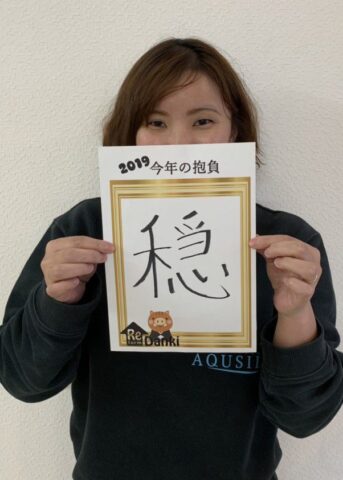 2019今年の抱負
穏
Re
Danki
AQUSI